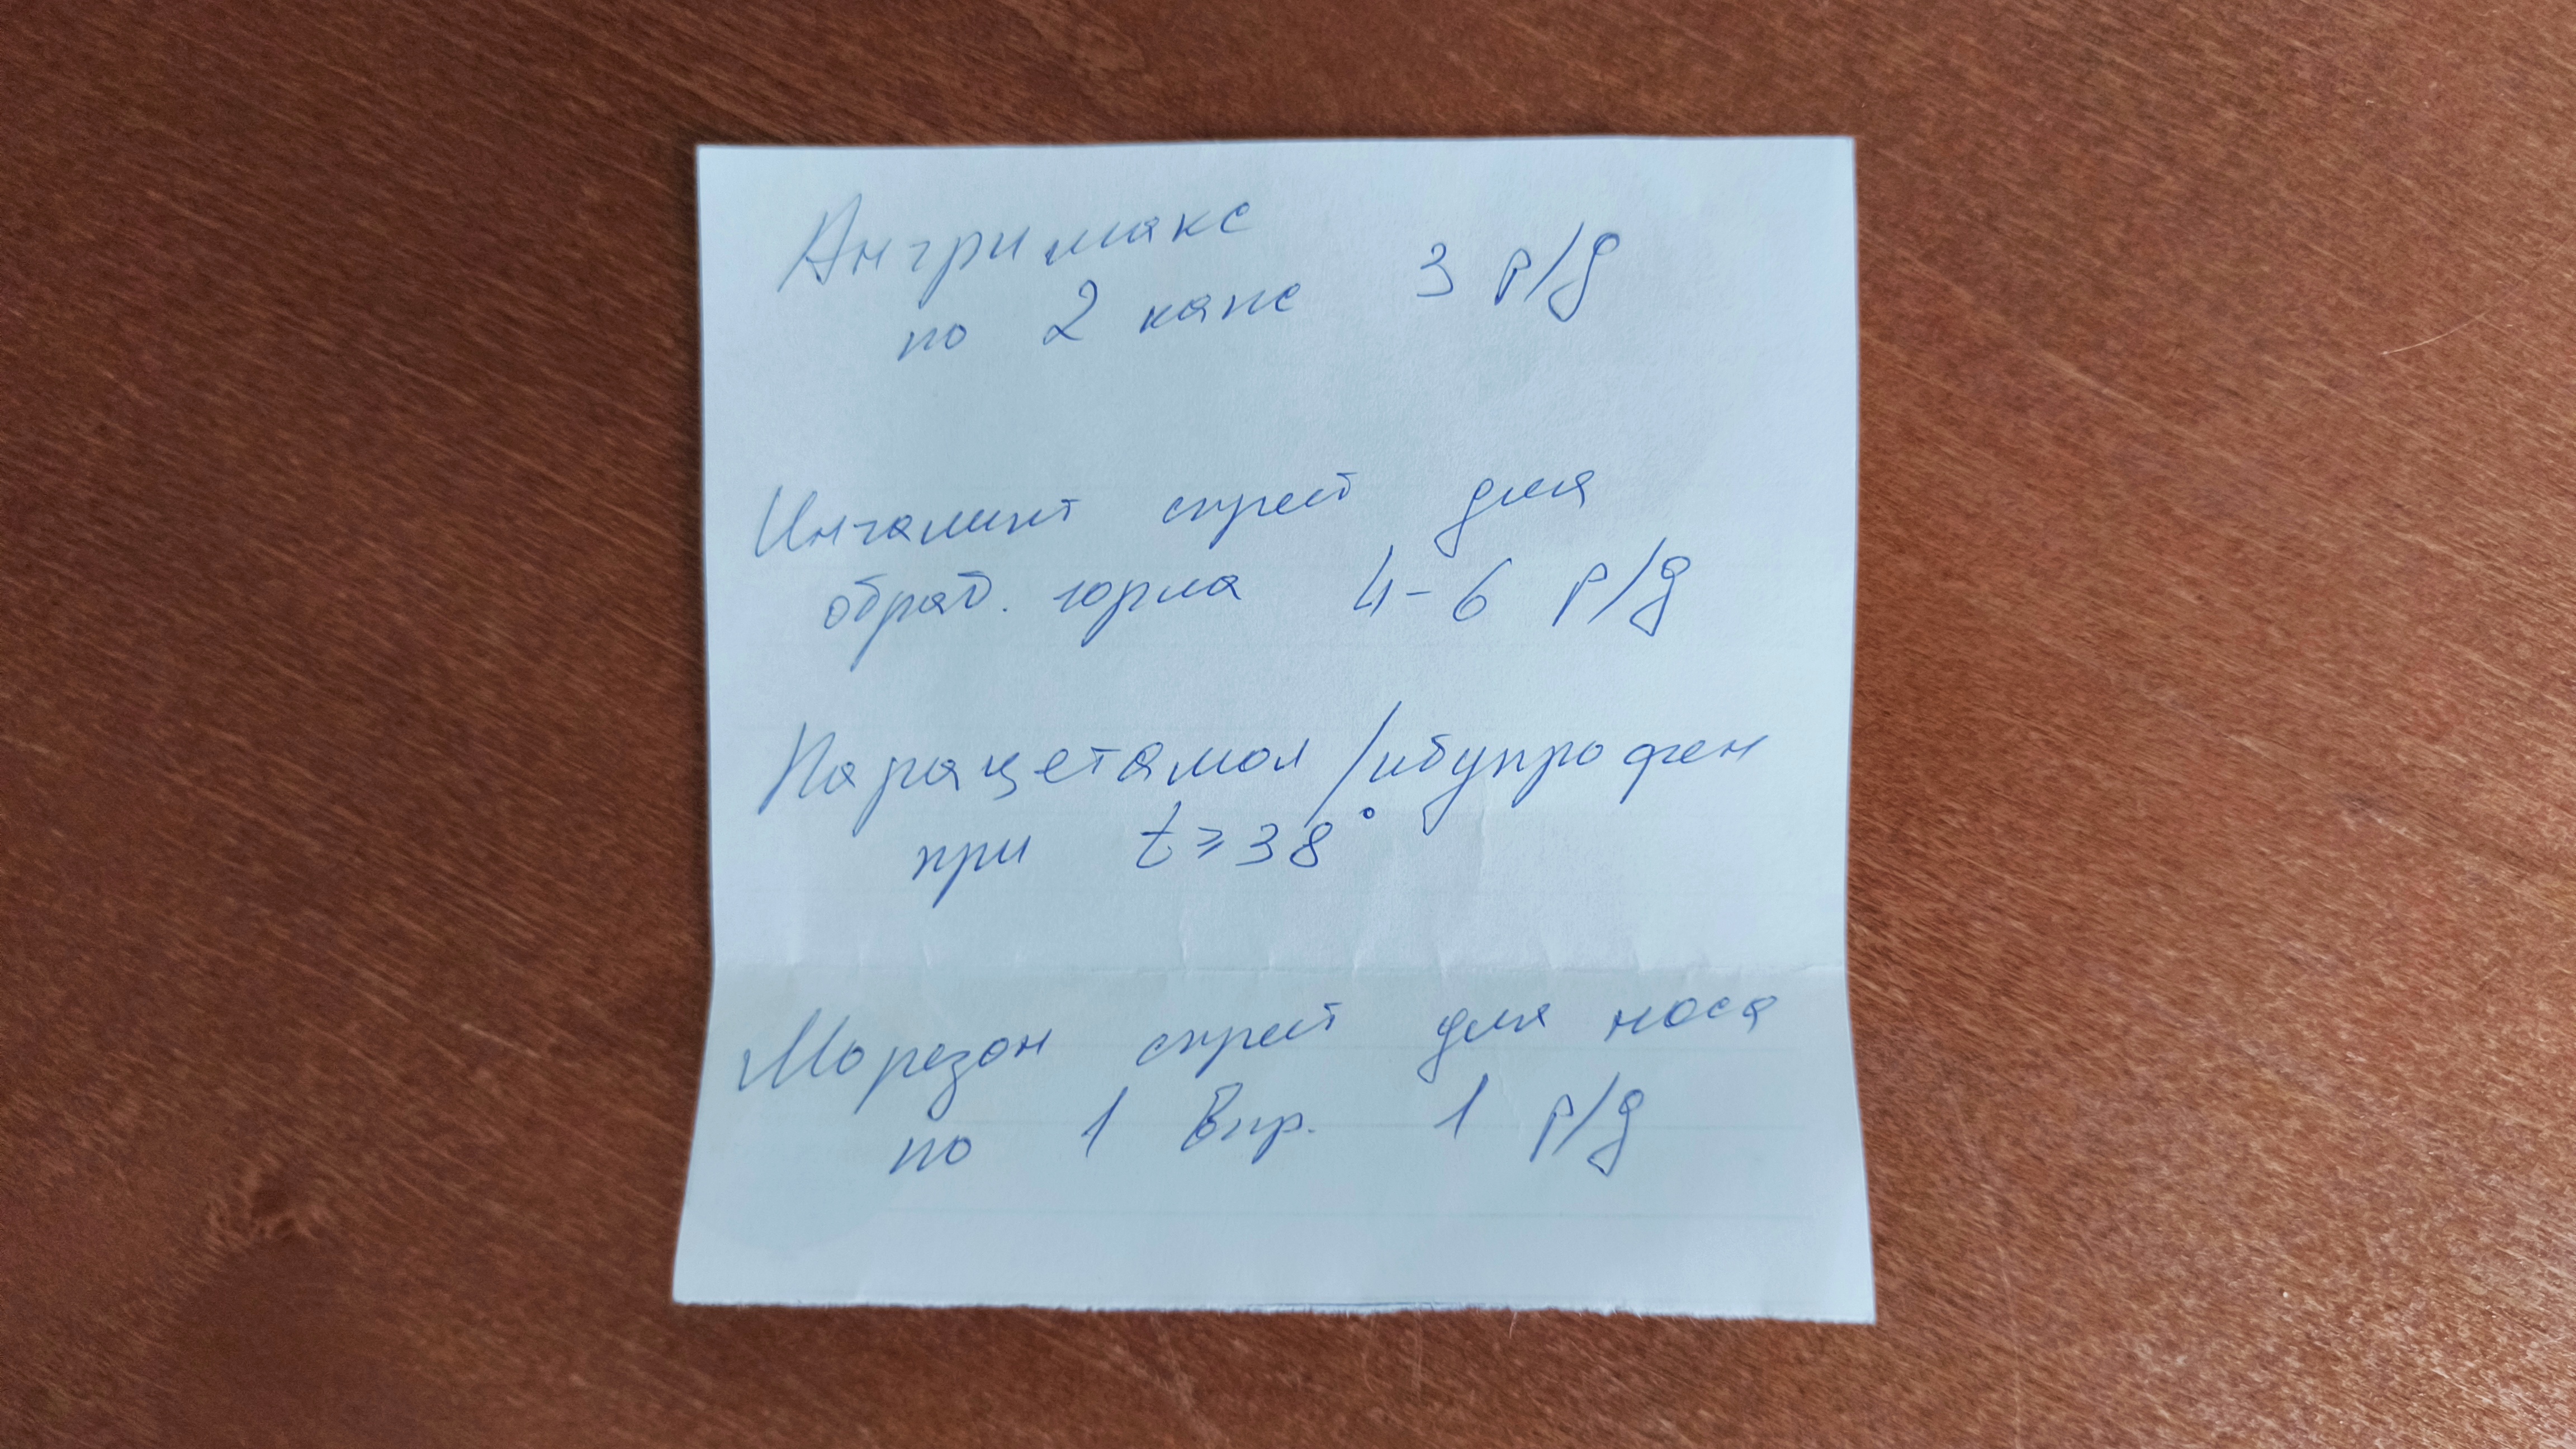 Ангримакс
по 2 капс 3 р/д
Ингалипт спрей для
обраб. горла 4-6 р/д
Парацетамол/ибупрофен
при t≥38°
Морезон спрей для носа
по 1 впр. 1 р/д